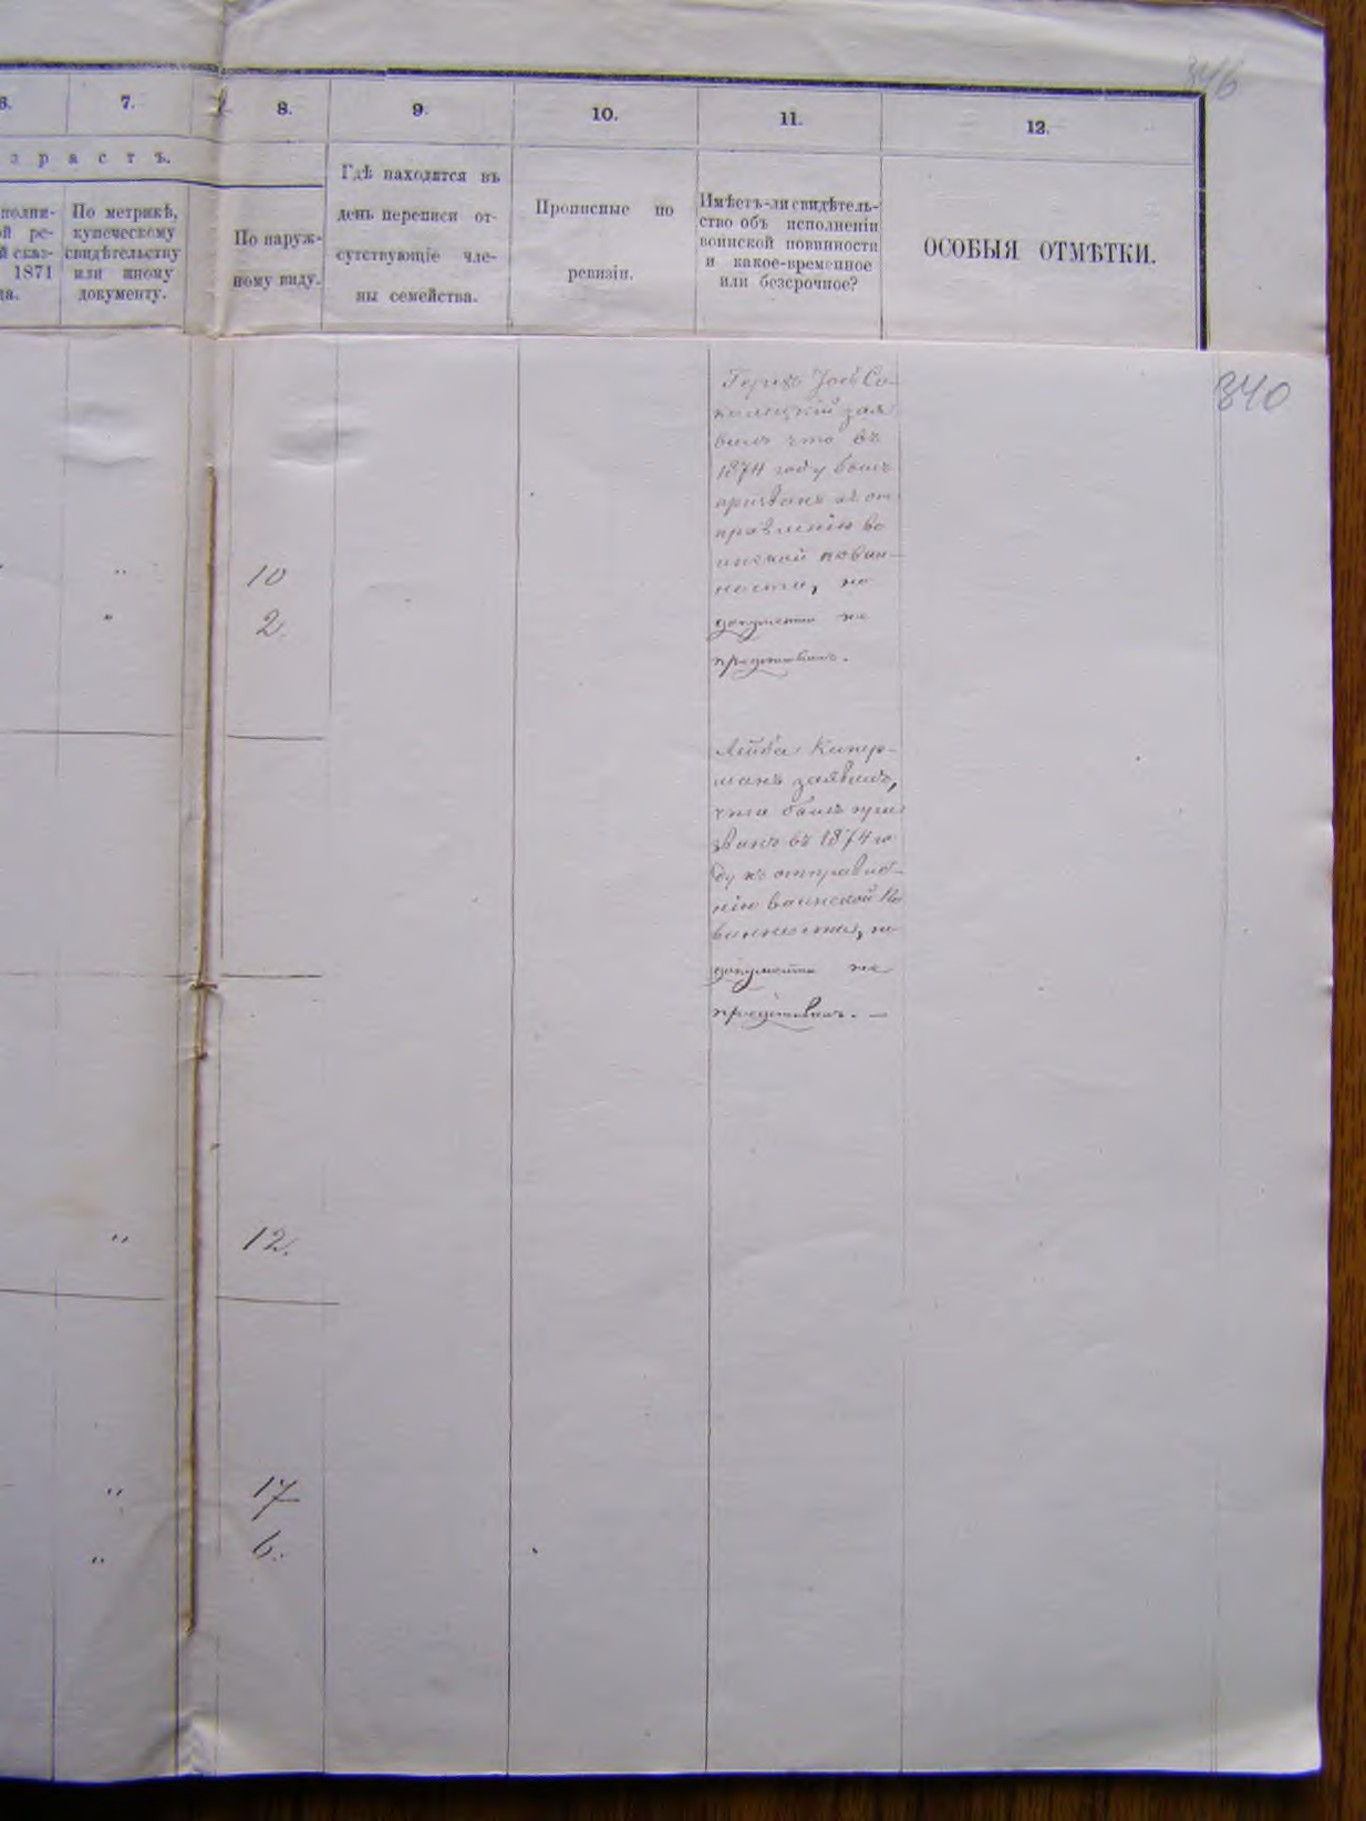 346
6.
7.
8.
9.
10.
11.
12.
з р а с т ъ.
полни-
й ре-
й сказ-
1871
да.
По метрикѣ,
купеческому
свидѣтельству
или иному
документу.
По наруж-
ному виду.
Гдѣ находятся въ
день переписи от-
сутствующіе чле-
ны семейства.
Прописные по
ревизіи.
Имѣетъ-ли свидѣтель-
ство объ исполненіи
воинской повинности
и какое-временное
или безсрочное?
ОСОБЫЯ ОТМѢТКИ.
340
Іось Со-
колецкій зая
вилъ что въ
1874 году былъ
призванъ къ от
правленію во
инской повин-
ности, но
документа не
представилъ.
"
10
"
2.
Лейба Кипер-
манъ заявилъ,
что былъ при
званъ въ 1874 го
ду къ отправле-
нію воинской По
винности, но
документа не
представилъ. —
"
12.
"
17
"
6.